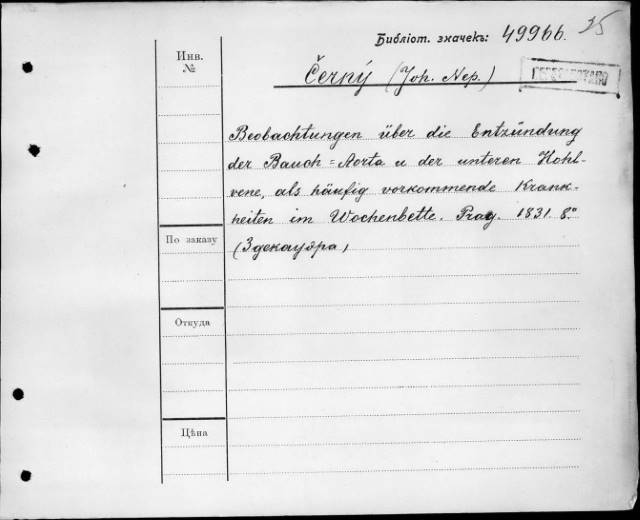 Библіот. значекъ: 49966. 25
Инв. №
Černý (Joh. Nep.)
Beobachtungen über die Entzündung
der Bauch=Aorta u der unteren Hohl-
vene, als häufig vorkommende Krank-
heiten im Wochenbette. Prag. 1831. 8.º
По заказу
Откуда
Цѣна